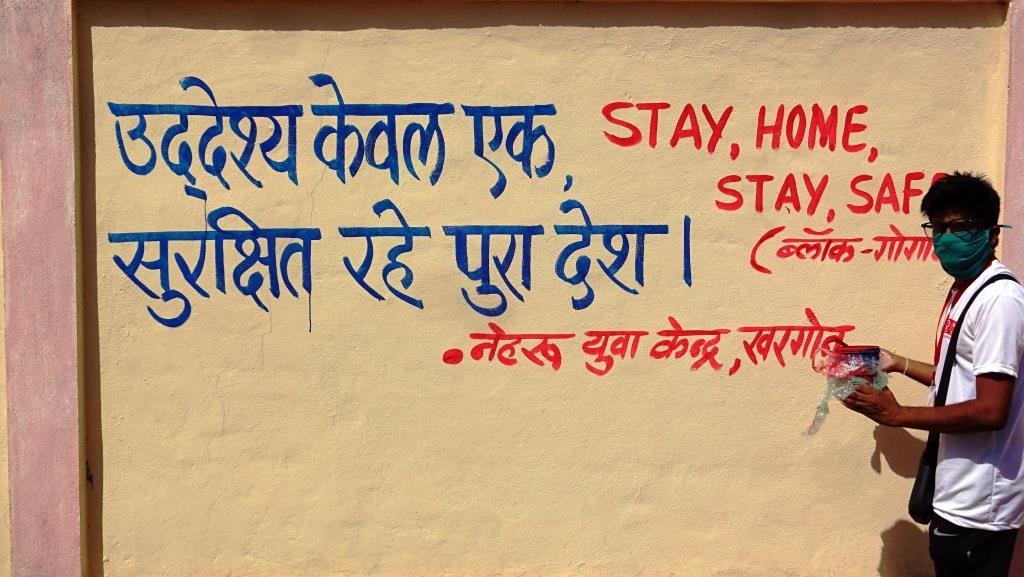 उद्देश्य केवल एक,
सुरक्षित रहे पुरा देश।
STAY, HOME,
STAY, SAF
(ब्लॉक-गोगा
• नेहरू युवा केन्द्र, खरगोन